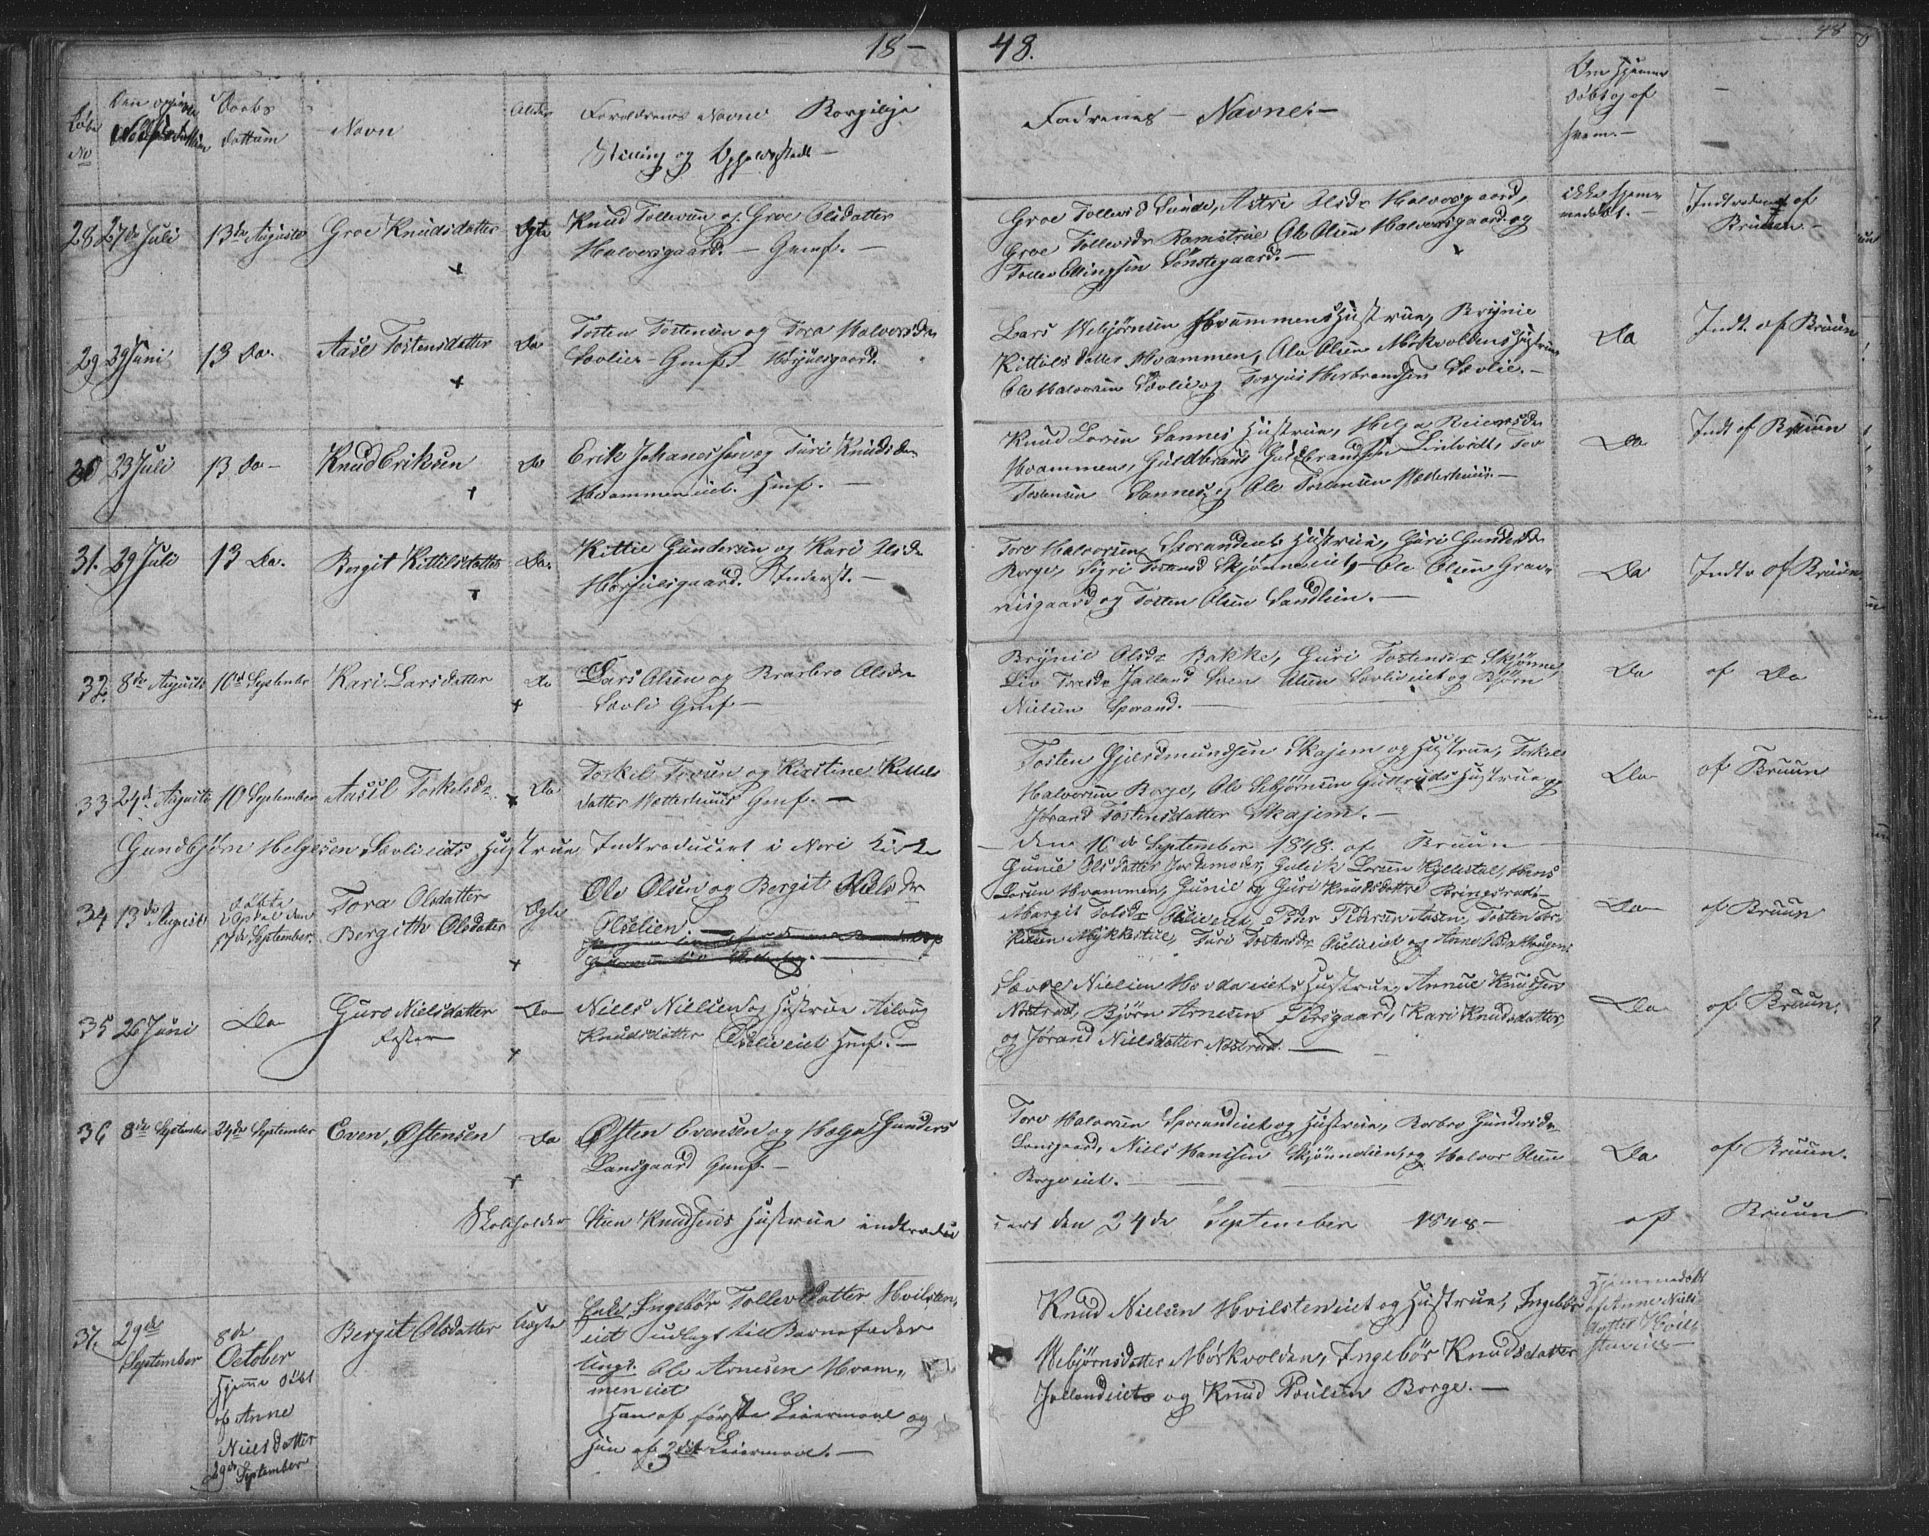 18 — 48.
48
Løbe No
Den opgivne Fødselsdatum
Daabs datum
Navn
Ældre
Forældrenes Navne Borgelige
Stilling og Opholdssted —
Fadrenes — Navne. —
Om hjemme døbt og af hvem. —
28 27de Juli 13de Auguste Groe Knudsdatter Ægte
Knud Tollevsen og Groe Olsdatter
Halvorsgaard. — Gmf. —
Groe Tollevsd Sunde, Astri Olsdr Halvorsgaard,
Groe Tollevsdr Ramstrue Ole Olsen Halvorsgaard og
Tollev Ellingsen Sønstegaard. —
ikke hjemmedøbt. —
Indtroduceret af Bruun —
29 29 Juni 13 Do. Aase Tostensdatter Do
Tosten Tostensen og Tora Halvorsdr
Sevlie — Gmf
Lars Webjørnsen Hvammens Hustrue, Brynie
Kittilsdatter Hvammen, Ole Olsen Mørkvoldens Hustrue
Ole Halvorsen Sævlie og Torgiis Herbrandsen Sævlie. —
Da
Indt. af Bruun
30 23 Juli 13 do — Knud Eriksen do
Erik Johanessen og Turi Knudsdr
Hvammeneiet. Hmf. —
Knud Larsen Sannes Hustrue, Helga Reiersdr
Hvammen, Guldbrand Guldbrandsen Lintvedt, Tor
Tostensen Sannes og Ole Tostensen Wetterhuus. —
Do
Indt af Bruun
31. 29 Juli 13 Do. Bergit Kittilsdatter Do.
Kittil Gundersen og Kari Olsdr
Horjulsgaard. Inderst. —
Tore Halvorsen Sporandeiets Hustrue, Guri Gundersd
Borge, Sigri Tostensd Skjønneeiet, Ole Olsen Grav-
nisgaard og Tosten Olsen Sandlien. —
Da
Indtr af Bruun
32. 8de Auguste 10de September Kari Larsdatter do
Lars Olsen og Brarbro Olsdr
Sævli Gmf —
Brynie Olsdr Bakke, Guri Tostensdr Skjønne,
Liv Torsdr Jalland Sven Olsen Sævlieiet og Bjørn
Nielsen Sporand. —
Do
af Do
33 24de Auguste 10 September Aasil Torkelsdr Do
Torkel Torsen og Kirstine Kittels
datter Wetterhuus Gmf. —
Tosten Gjermundsen Skajem og Hustrue, Torkel
Halvorsen Borge, Ole Webjørnsen Guttruds Hustrue og
Jørand Tostensdatter Skajem. —
Da
af Bruun
Gundbjørn Helgesen Sævlieiets Hustrue Indtroduceret i Nore Kirke
den 10de September 1848. af Bruun —
34 13de August døbte i Opdal den 17de September.
Tora Olsdatter
Bergith Olsdatter
Ægte
Ole Olsen og Bergit Nielsdr
Øslien. —
Gunil Olsdatter Jordemoder, Guleik Larsen Kjellstal, Hens
Larsen Hvammen, Gunil og Guri Knudsdattre Bringsrud
Margit Tolsdr Øslieeiet, Peder Pedersen Aasen, Tosten Tor
kilsen Mykkestul, Turi Tostensdr Øslieeiet og Anne
Da
af Bruun
35 26 Juni Do Guro Nielsdatter
Do
Niels Nielsen og Hustrue Aslaug
Knudsdatter Øslieeiet Hmf. —
Sævre Nielsen Hovdeneiets Hustrue, Annue Knudsen
Nøstrud, Bjørn Arnesen Torsgaard, Kari Knudsdatter,
og Jørand Nielsdatter Nøstrud. —
Do
af Bruun.
36 8de September 24de September Even Østensen Da
Østen Evensen og Helga Gunders
Landsgaard Gmf. —
Tore Halvorsen Sporandeiet og Hustrue, Barbro Gundersdr
Landsgaard, Niels Hansen Skjønnelien og Halvor Olsen
Borgeeiet. —
Da
af Bruun.
Skoleholder Sten Knudsens Hustrue indtroduceret den 24de September 1848 — af Bruun
37. 29de September
8de October
Hjemme døbt
af Anne
Nielsdatter
29de September
Bergit Olsdatter Uægte
Enke Ingebør Tollevsdatter Hvilsten-
eiet udlagt till Barnefader
Ungk. Ole Arnesen Hvam-
meneiet
Han af første Leiermaal og
Hun af 2det Leiermaal. —
Knud Nielsen Hvilsteneiet og Hustrue, Ingebør
Webjørnsdatter Mørkvolden, Ingebør Knudsdatter
Jallandeiet og Knud Poulsen Borge. —
Hjemmedøbt
af Anne Niels
datter Hvil-
steneiet —